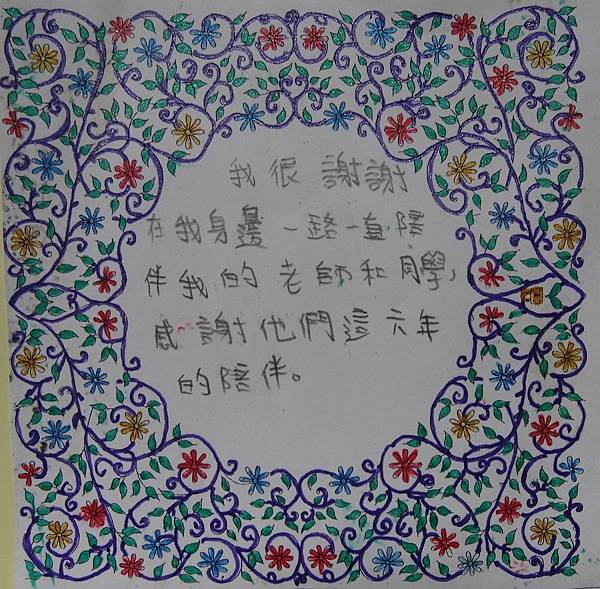 我很謝謝
在我身邊一路一直陪
伴我的老師和同學，
感謝他們這六年
的陪伴。